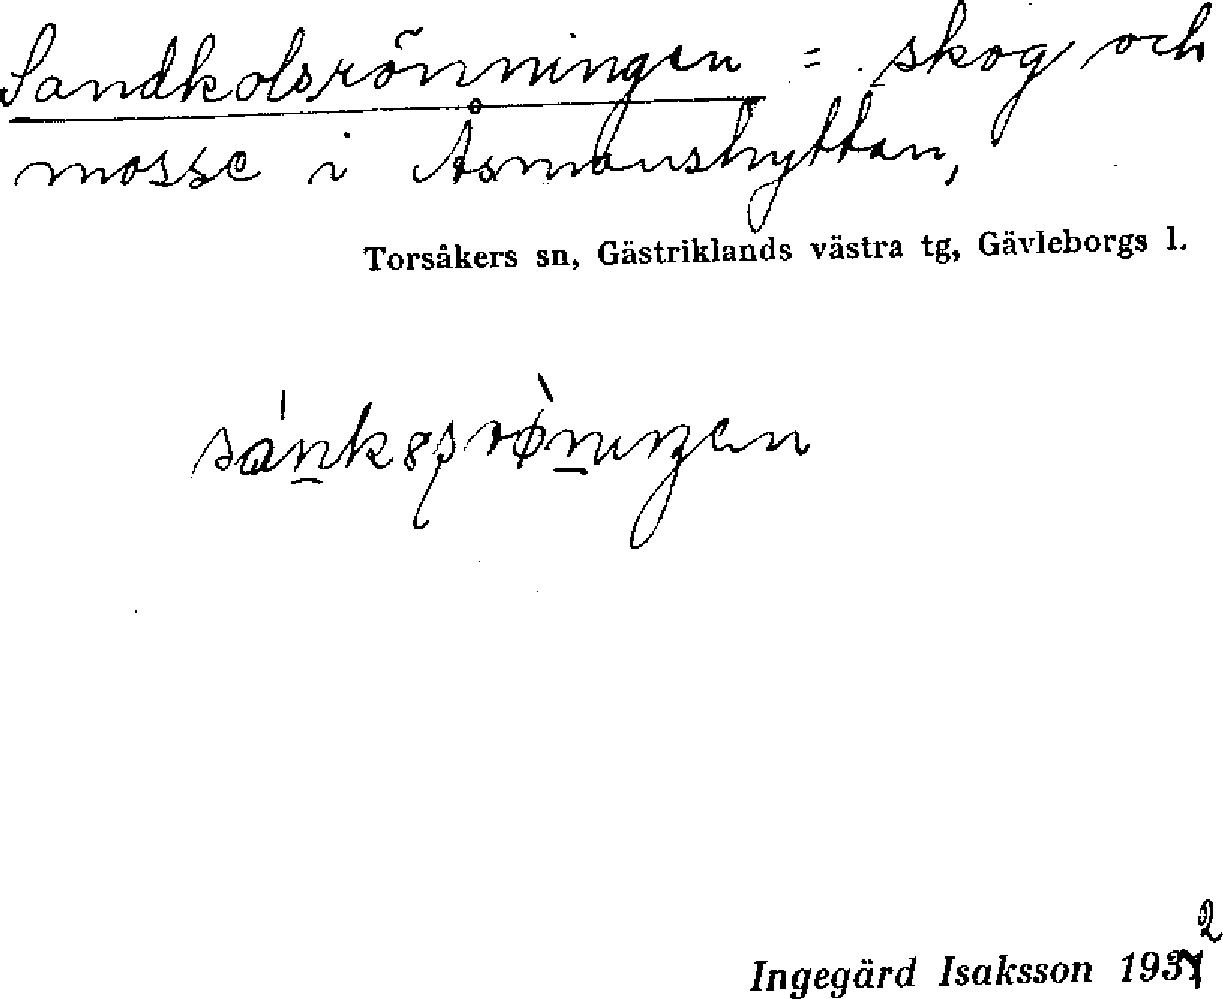 Sandkolsrönningen = skog och
mosse i Åsmundshyttan,
Torsåkers sn, Gästriklands västra tg, Gävleborgs l.
Ingegärd Isaksson 1932